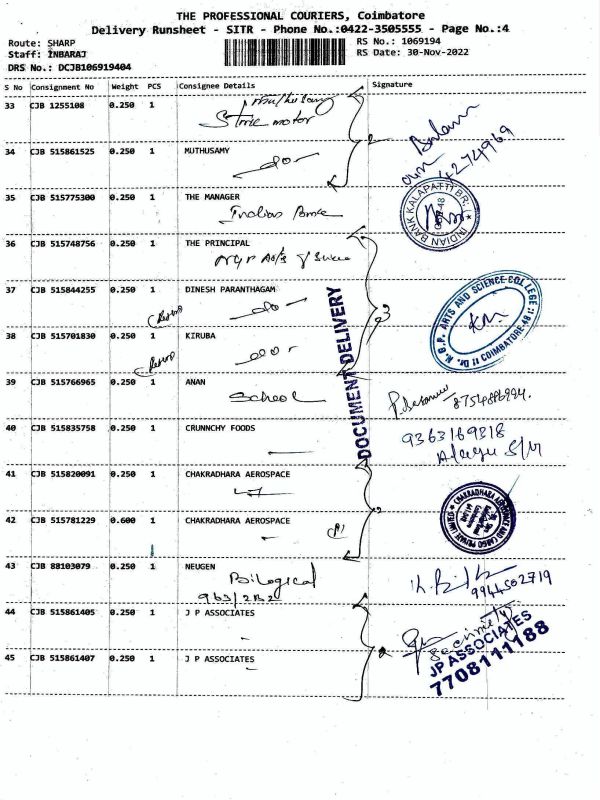 THE PROFESSIONAL COURIERS, Coimbatore
Delivery Runsheet - SITR - Phone No.:0422-3505555 - Page No.:4
Route: SHARP RS No.: 1069194
Staff: INBARAJ RS Date: 30-Nov-2022
DRS No.: DCJB106919404
S No Consignment No Weight PCS Consignee Details Signature
33 CJB 1255108 0.250 1
motor
34 CJB 515861525 0.250 1 MUTHUSAMY
4274969
35 CJB 515775300 0.250 1 THE MANAGER
Indian Bank
INDIAN BANK KALAPATTI BR.
36 CJB 515748756 0.250 1 THE PRINCIPAL
NGP Arts
37 CJB 515844255 0.250 1 DINESH PARANTHAGAM
do
N.G.P. ARTS AND SCIENCE COLLEGE
COIMBATORE-48
38 CJB 515701830 0.250 1 KIRUBA
do
DOCUMENT DELIVERY
39 CJB 515766965 0.250 1 ANAN
School
8754886924.
40 CJB 515835758 0.250 1 CRUNNCHY FOODS
9363169318
41 CJB 515820091 0.250 1 CHAKRADHARA AEROSPACE
CHAKRADHARA AEROSPACE AND CARGO PRIVATE LIMITED
42 CJB 515781229 0.600 1 CHAKRADHARA AEROSPACE
43 CJB 88103079 0.250 1 NEUGEN
Bilogical
963/2B2
9944502719
44 CJB 515861405 0.250 1 J P ASSOCIATES
45 CJB 515861407 0.250 1 J P ASSOCIATES
JP ASSOCIATES
7708111188